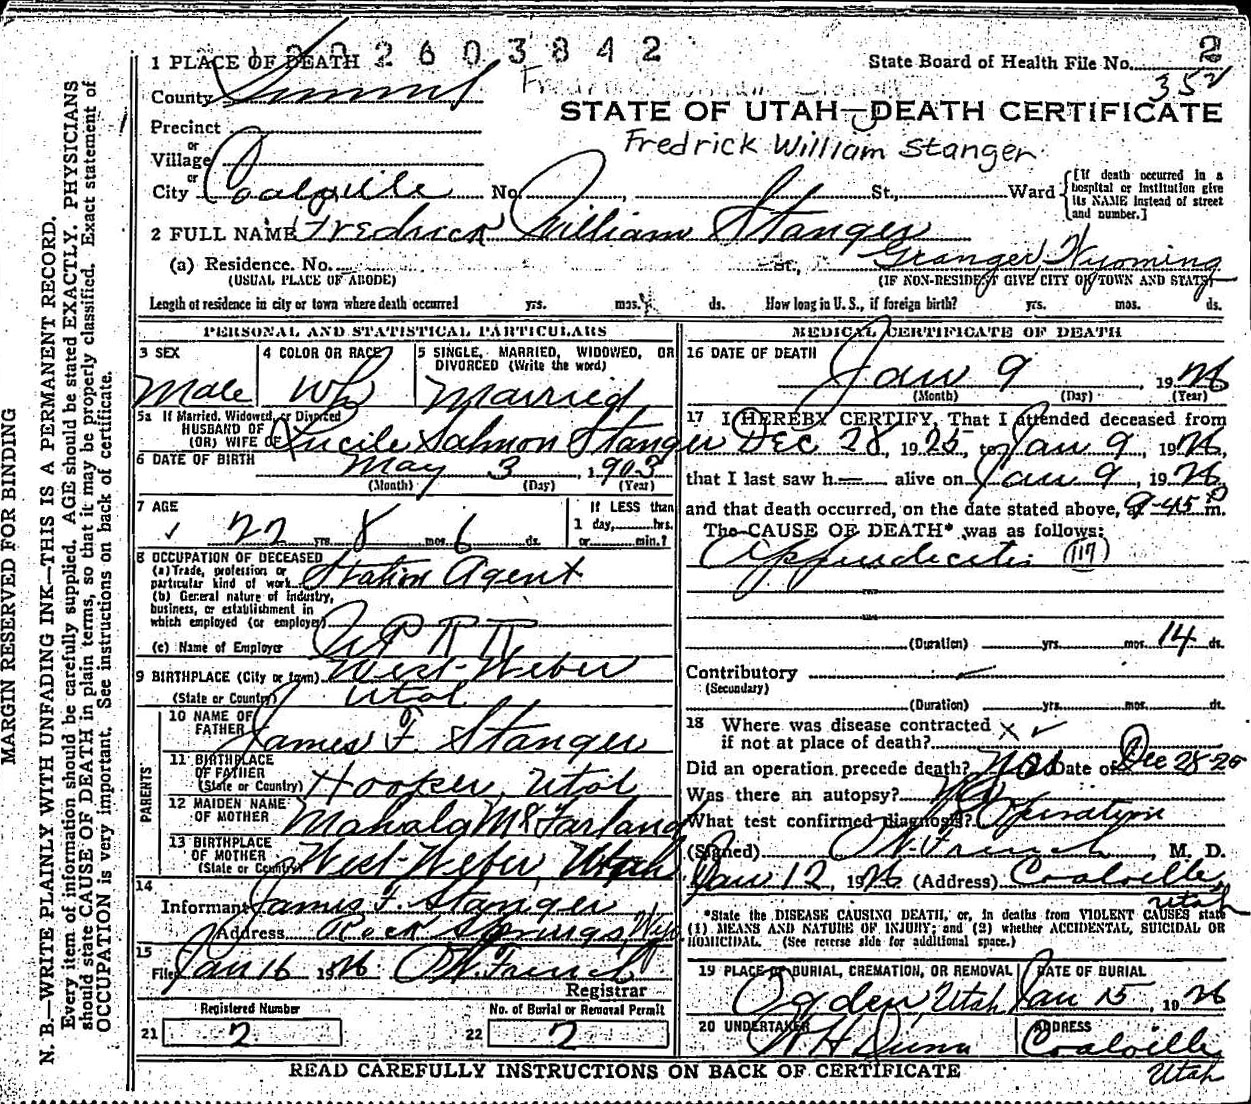 2602603842
1 PLACE OF DEATH
State Board of Health File No. 2
County Summit
352
STATE OF UTAH—DEATH CERTIFICATE
Precinct
Fredrick William Stanger
or
Village
or
City Coalville No. St., Ward
[If death occurred in a hospital or institution give its NAME instead of street and number.]
2 FULL NAME Fredrick William Stanger
(a) Residence. No. St., Granger, Wyoming
(USUAL PLACE OF ABODE) (IF NON-RESIDENT GIVE CITY OR TOWN AND STATE)
Length of residence in city or town where death occurred yrs. mos. ds. How long in U. S., if foreign birth? yrs. mos. ds.
PERSONAL AND STATISTICAL PARTICULARS
3 SEX
Male
4 COLOR OR RACE
Wh
5 SINGLE, MARRIED, WIDOWED, OR DIVORCED (Write the word)
Married
5a If Married, Widowed, or Divorced
HUSBAND OF
(OR) WIFE OF Lucile Salmon Stanger
6 DATE OF BIRTH May 3, 1903
(Month) (Day) (Year)
7 AGE
22 yrs. 8 mos. 6 ds.
If LESS than
1 day, hrs.
or min.?
8 OCCUPATION OF DECEASED
(a) Trade, profession or
particular kind of work Station Agent
(b) General nature of industry,
business, or establishment in
which employed (or employer)
(c) Name of Employer U P R R
9 BIRTHPLACE (City or town) West Weber
(State or Country) Utah
PARENTS
10 NAME OF
FATHER James F. Stanger
11 BIRTHPLACE
OF FATHER
(State or Country) Hooper, Utah
12 MAIDEN NAME
OF MOTHER Mahala McFarland
13 BIRTHPLACE
OF MOTHER
(State or Country) West Weber, Utah
14
Informant James F. Stanger
Address Rock Springs, Wyo
15
Filed Jan 16 1926 O.W. French
Registrar
Registered Number
21 2
No. of Burial or Removal Permit
22 2
MEDICAL CERTIFICATE OF DEATH
16 DATE OF DEATH
Jan 9, 1926
(Month) (Day) (Year)
17 I HEREBY CERTIFY, That I attended deceased from
Dec 28, 1925, to Jan 9, 1926,
that I last saw h— alive on Jan 9, 1926
and that death occurred, on the date stated above, 9-45 P m.
The CAUSE OF DEATH* was as follows:
Appendicitis (117)
(Duration) yrs. mos. 14 ds.
Contributory
(Secondary)
(Duration) yrs. mos. ds.
18 Where was disease contracted
if not at place of death?
Did an operation precede death? Yes Date of Dec 28-25
Was there an autopsy? No
What test confirmed diagnosis? Operation
(Signed) O.W. French, M. D.
Jan 12, 1926 (Address) Coalville
Utah
*State the DISEASE CAUSING DEATH, or, in deaths from VIOLENT CAUSES state
(1) MEANS AND NATURE OF INJURY; and (2) whether ACCIDENTAL, SUICIDAL OR
HOMICIDAL. (See reverse side for additional space.)
19 PLACE OF BURIAL, CREMATION, OR REMOVAL
Ogden, Utah
DATE OF BURIAL
Jan 15, 1926
20 UNDERTAKER
W H Dunn
ADDRESS
Coalville
Utah
READ CAREFULLY INSTRUCTIONS ON BACK OF CERTIFICATE
MARGIN RESERVED FOR BINDING
N. B.—WRITE PLAINLY WITH UNFADING INK—THIS IS A PERMANENT RECORD.
Every item of information should be carefully supplied. AGE should be stated EXACTLY. PHYSICIANS
should state CAUSE OF DEATH in plain terms, so that it may be properly classified. Exact statement of
OCCUPATION is very important. See instructions on back of certificate.